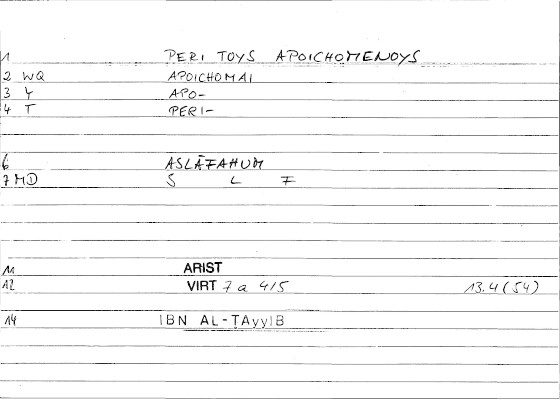 1 PERI TOYS APOICHOMENOYS
2 WQ APOICHOMAI
3 Y APO-
4 T PERI-
6 ASLĀFAHUM
7 MD S L F
11 ARIST
12 VIRT 7 a 4/5 13.4 (54)
14 IBN AL-ṬAyyIB